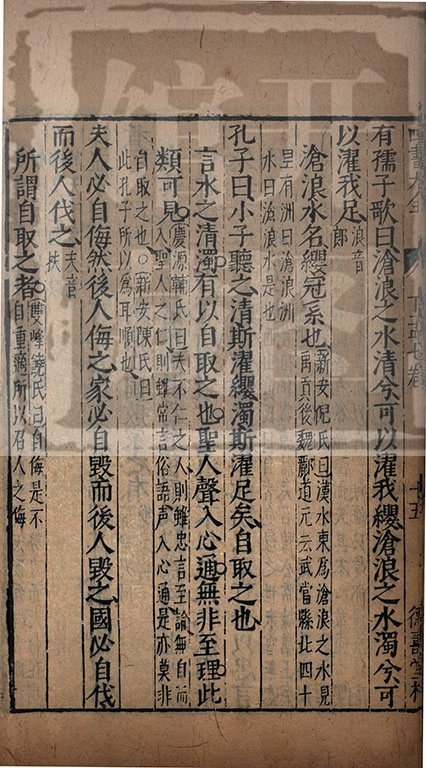 有孺子歌曰滄浪之水清兮可以濯我纓滄浪之水濁兮可
以濯我足浪音郎
滄浪水名纓冠系也新安倪氏曰漢水東爲滄浪水見禹貢後魏酈道元云武當縣北四十
里有洲曰滄浪洲水曰滄浪水是也
孔子曰小子聽之清斯濯纓濁斯濯足矣自取之也
言水之清濁有以自取之也聖人聲入心通無非至理此
類可見慶源輔氏曰夫不仁之人則雖忠言至論無自而入聖人之仁則雖常言俗語声入心通是亦莫非
自取之也○新安陳氏曰此孔子所以爲耳順也
夫人必自侮然後人侮之家必自毀而後人毀之國必自伐
而後人伐之夫音扶
所謂自取之者雙峰饒氏曰自侮是不自重適所以召人之侮
十五